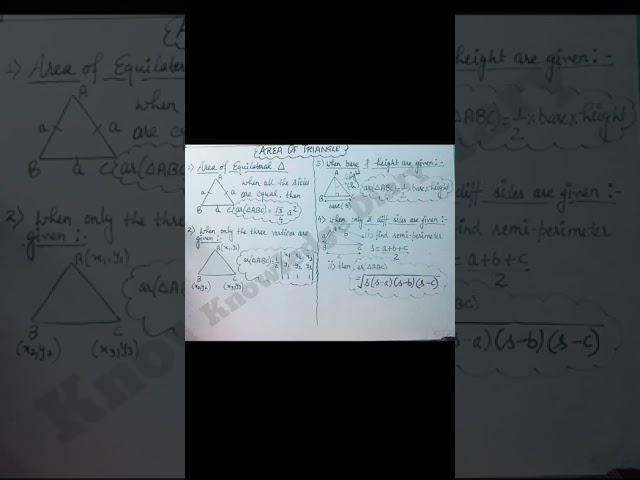 {AREA OF TRIANGLE}
1) Area of Equilateral Δ
A
a
a
B
a
C
when all the sides
are equal, then
ar(ΔABC) = √3/4 a²
2) When only the three vertices are
given :-
A(x₁, y₁)
B
(x₂, y₂)
C
(x₃, y₃)
ar(ΔABC) = 1/2
x₁ x₂ x₃
y₁ y₂ y₃
1 1 1
3) When base & height are given :-
A
height
(h)
B
base (B)
ar(ΔABC) = 1/2 × base × height
4) when only 3 diff sides are given :-
A
a
b
B
c
C
i) find semi-perimeter
s = a+b+c/2
ii) then, ar(ΔABC)
= √s(s-a)(s-b)(s-c)
Knowledge Diary